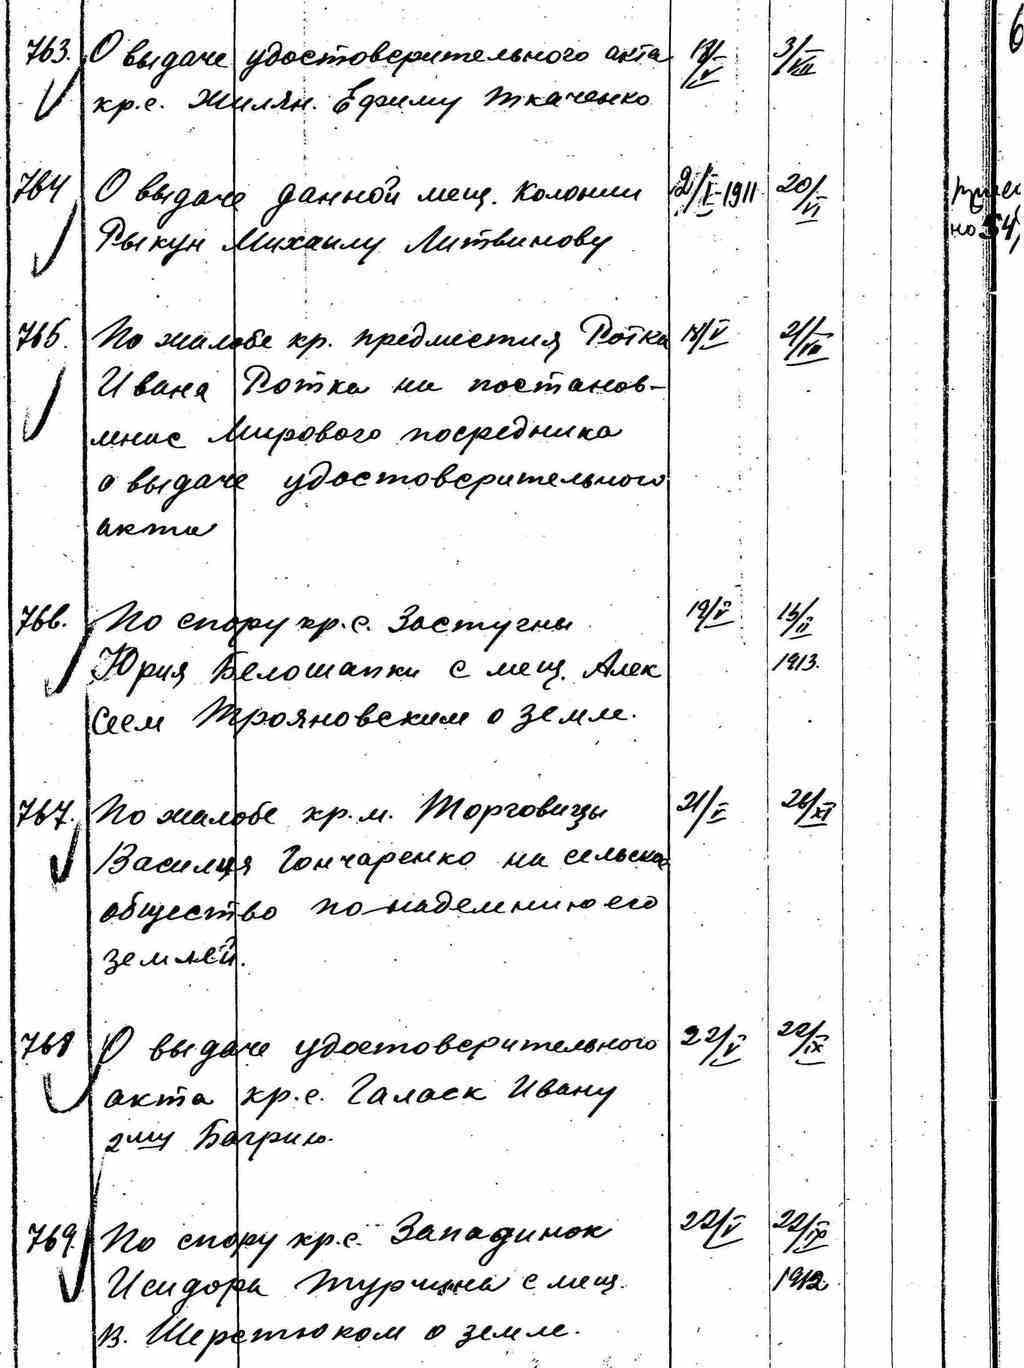 763. О выдаче удостоверительного акта 18/V 3/VIII
кр. с. Жилян. Ефиму Ткаченко
764 О выдаче данной мещ. колонии 2/V-1911 20/VI
Рыкун Михаилу Литвинову
но 54,
765. По жалобе кр. предместия Ротка 18/V 21/VIII
Ивана Ротка на постанов-
ление Мирового посредника
о выдаче удостоверительного
акта
766. По спору кр. с. Застугны 19/V 15/II
Юрия Белошапки с мещ. Алек 1913.
сеем Трояновским о земле.
767. По жалобе кр. м. Торговицы 21/V 26/XI
Василия Гончаренко на сельское
общество по наделению его
землей.
768 О выдаче удостоверительного 22/V 22/IX
акта кр. с. Галаек Ивану
2му Багрию.
769. По спору кр. с. Западинок 22/V 22/IX
Исидора Турчина с мещ. 1912.
В. Шерстюком о земле.